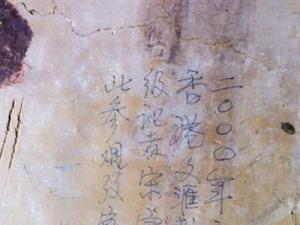 二〇〇〇年
香港文滙报
级记者宋
此参观